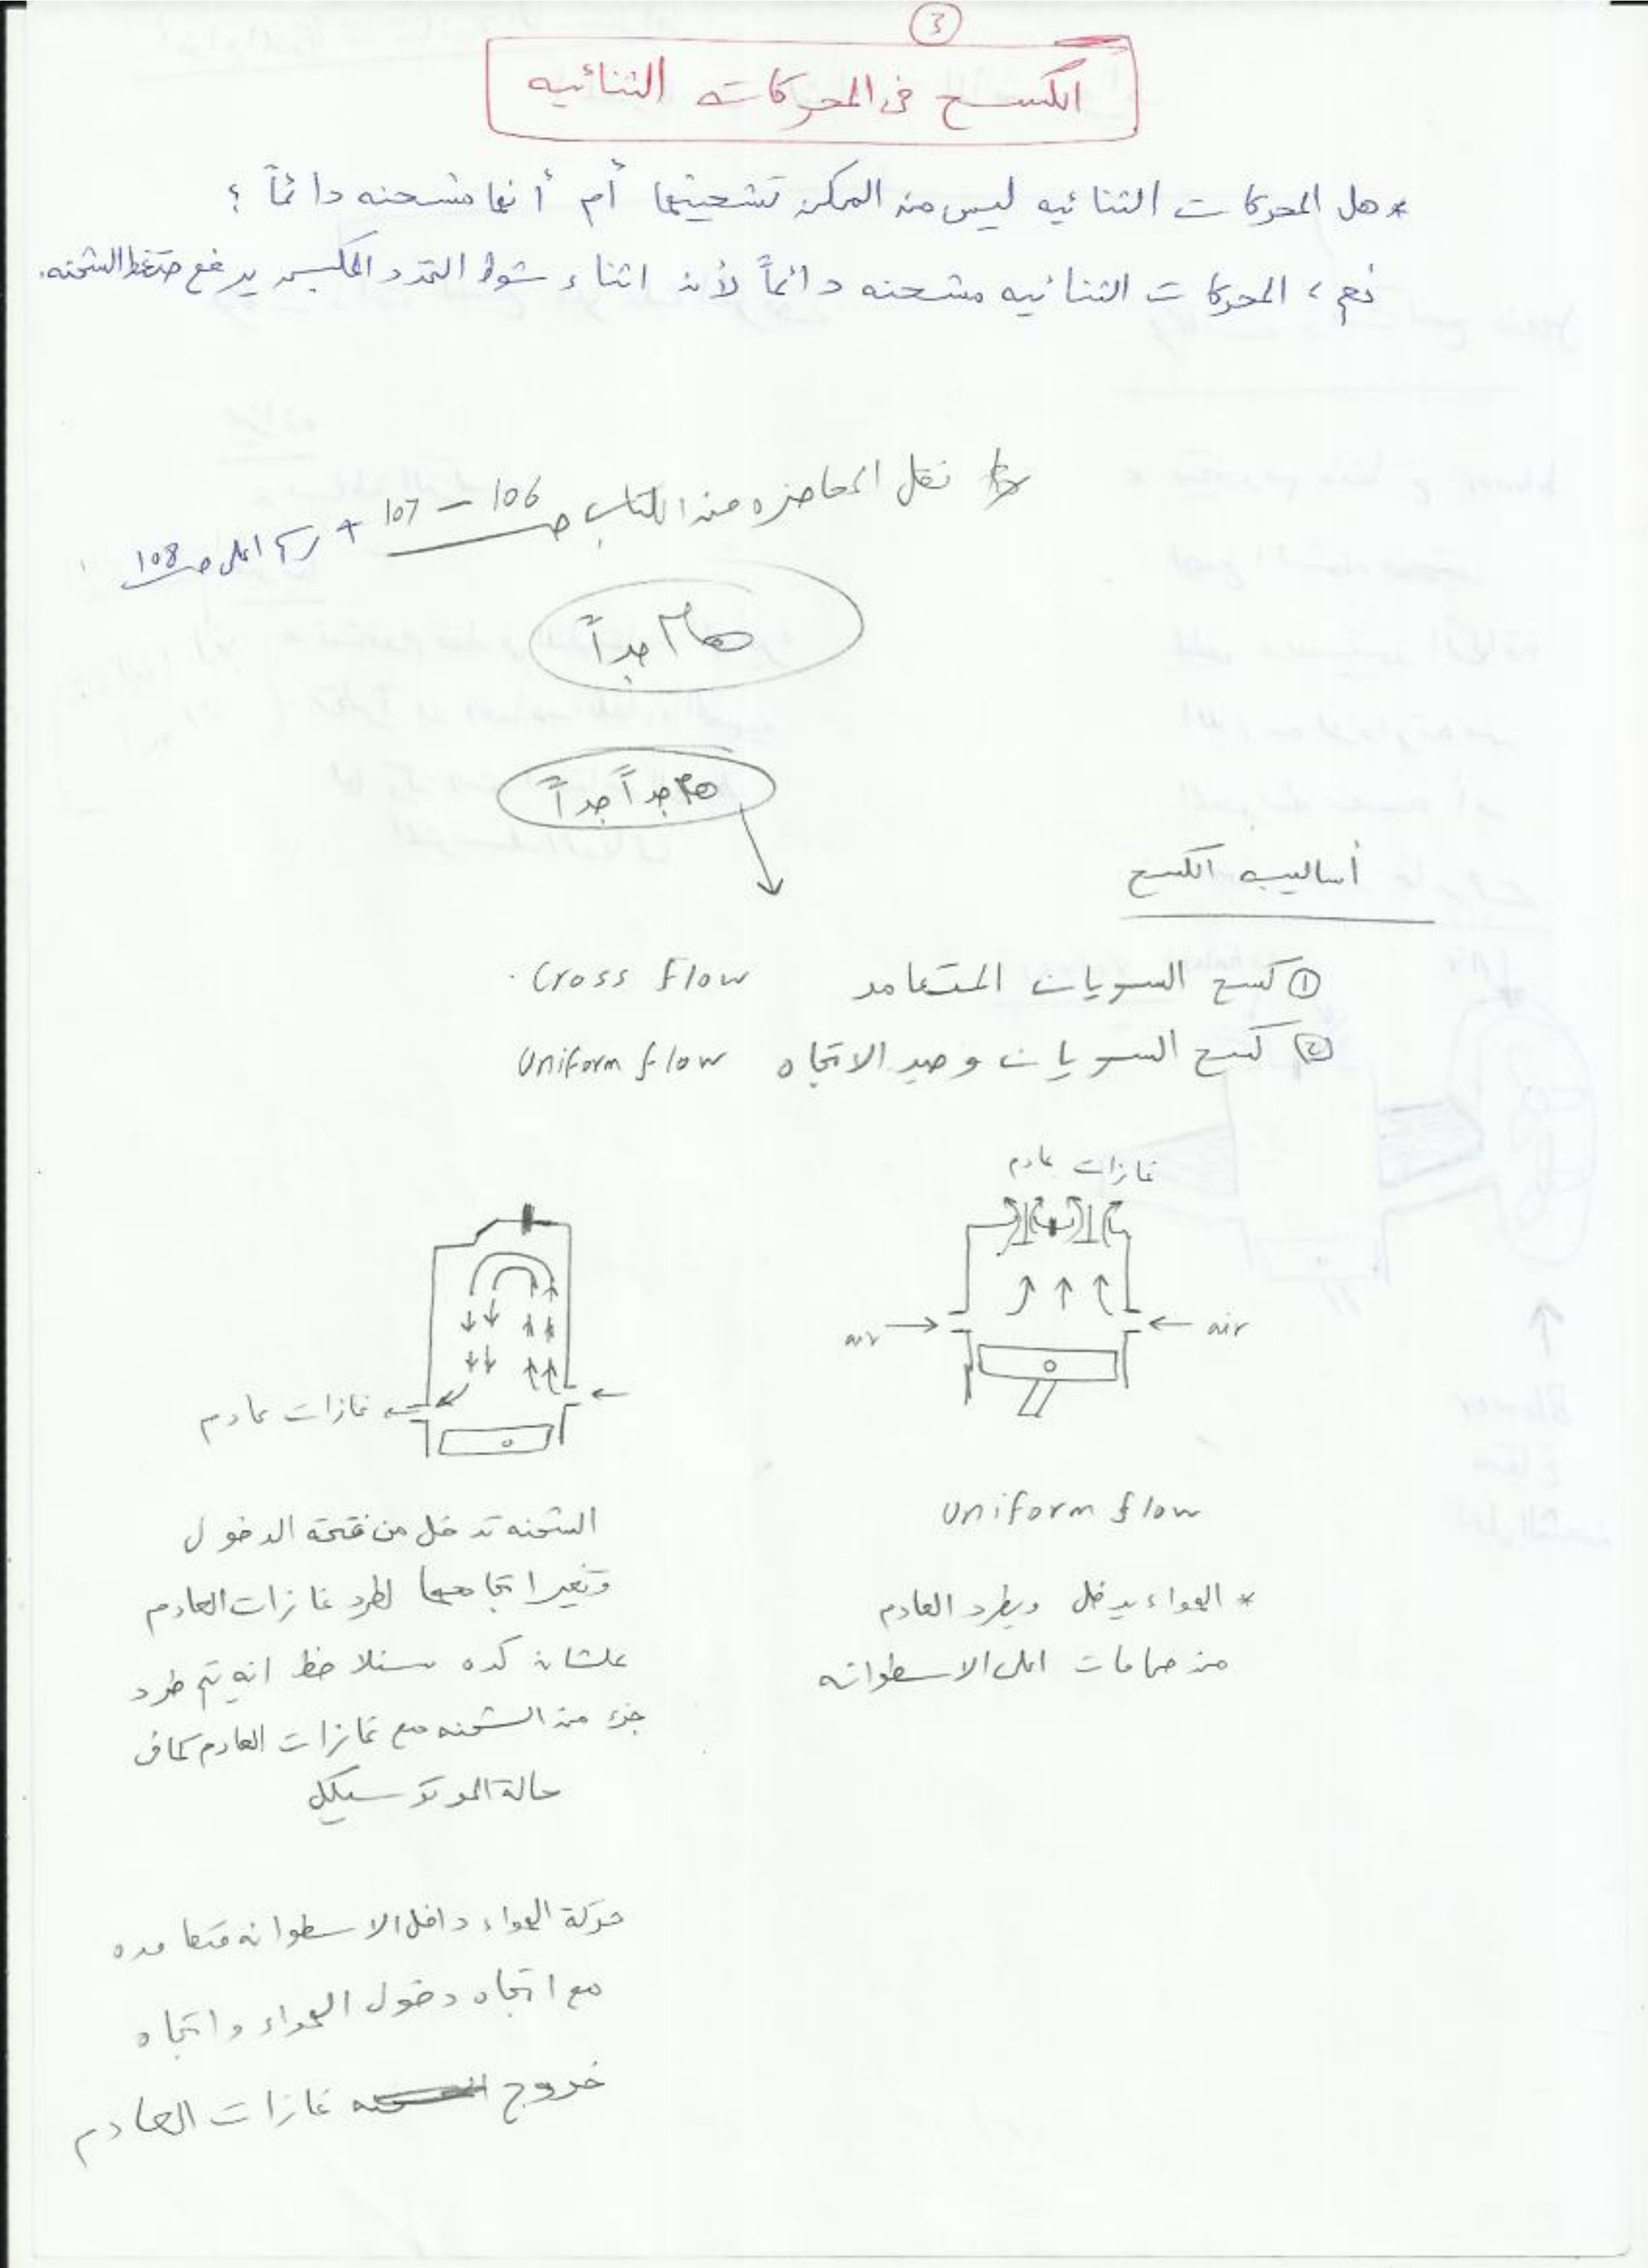 3
الكسح فى المحركات الثنائيه
* هل المحركات الثنائيه ليس من الممكن تشحينها أم أنها مشحنه دائماً ؟
نعم ، المحركات الثنائيه مشحنه دائماً لأن اثناء شوط التمدد المكبس يرفع ضغط الشحنه.
نقل المحاضره من الكتاب ص 106 – 107 + رسم اعلى ص 108
هام جداً
هام جداً جداً
أساليب الكسح
① كسح السريان المتعامد Cross flow .
② كسح السريان وحيد الاتجاه Uniform flow
غازات عادم
air
air
Uniform flow
* الهواء يدخل ويطرد العادم
من صمامات اعلى الاسطوانه
غازات عادم
الشحنه تدخل من فتحة الدخول
وتغير اتجاهها لطرد غازات العادم
علشان كده سنلاحظ انه يتم طرد
جزء من الشحنه مع غازات العادم كما فى
حالة الموتوسيكل
حركة الهواء داخل الاسطوانه متعامده
مع اتجاه دخول الهواء واتجاه
خروج غازات العادم